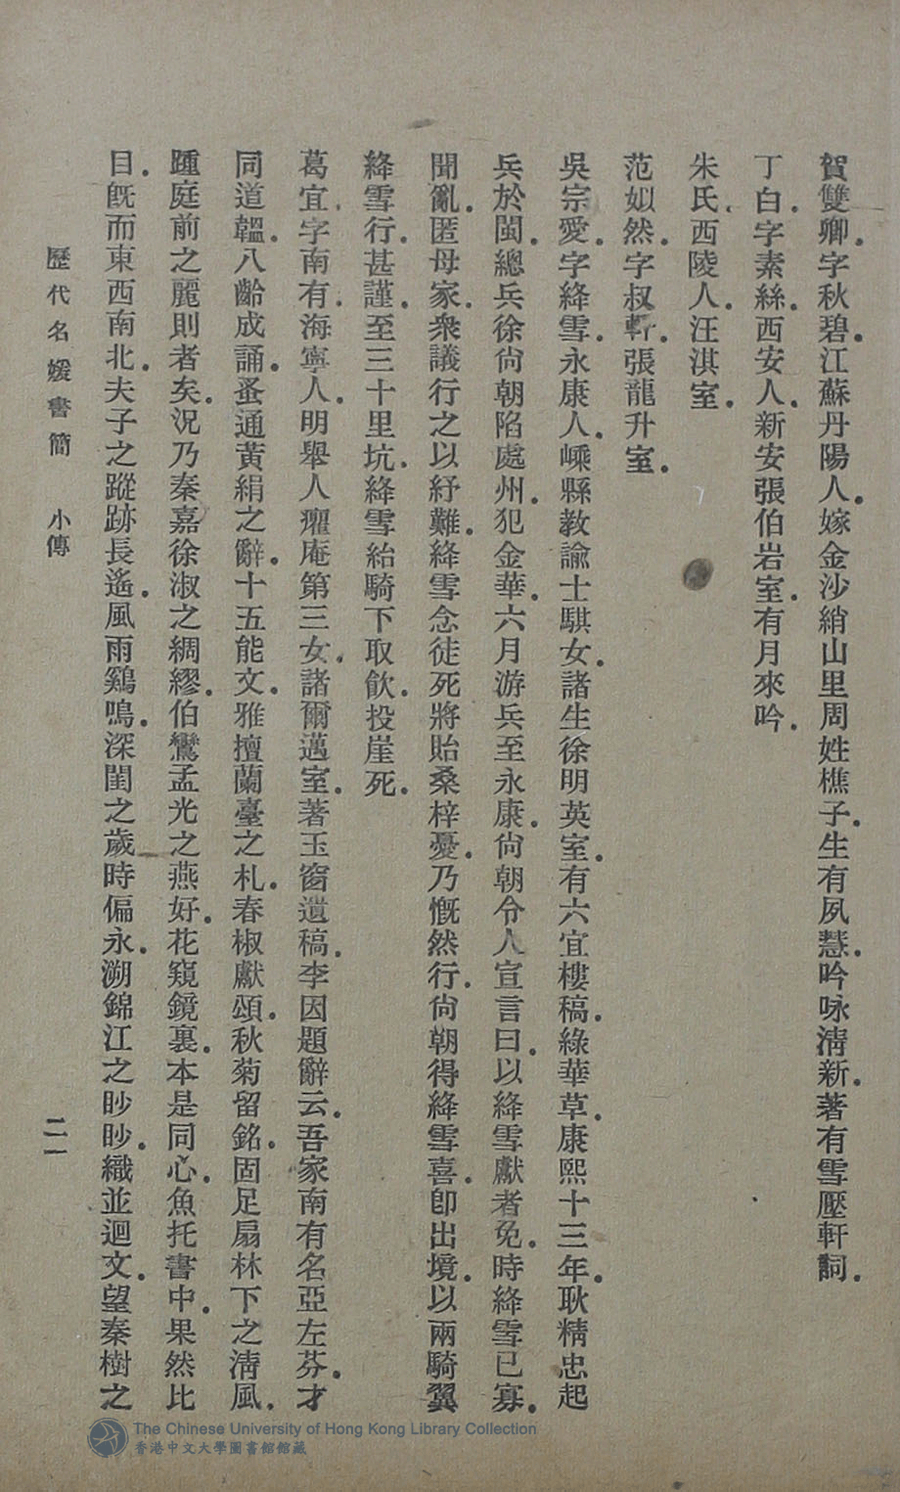 賀雙卿.字秋碧.江蘇丹陽人.嫁金沙綃山里周姓樵子.生有夙慧.吟咏淸新.著有雪壓軒詞.
丁白.字素絲.西安人.新安張伯岩室.有月來吟.
朱氏.西陵人.汪淇室.
范姒然.字叔軒.張龍升室.
吳宗愛.字絳雪.永康人.嵊縣敎諭士騏女.諸生徐明英室.有六宜樓稿.綠華草.康熙十三年.耿精忠起
兵於閩.總兵徐尙朝陷處州.犯金華.六月游兵至永康.尙朝令人宣言曰.以絳雪獻者免.時絳雪已寡.
聞亂.匿母家.衆議行之以紓難.絳雪念徒死將貽桑梓憂.乃慨然行.尙朝得絳雪喜.卽出境.以兩騎翼
絳雪行.甚謹.至三十里坑.絳雪紿騎下取飮.投崖死.
葛宜.字南有.海寧人.明舉人癯庵第三女.諸爾邁室.著玉窗遺稿.李因題辭云.吾家南有名亞左芬.才
同道韞.八齡成誦.蚤通黃絹之辭.十五能文.雅擅蘭臺之札.春椒獻頌.秋菊留銘.固足扇林下之淸風.
踵庭前之麗則者矣.況乃秦嘉徐淑之綢繆.伯鸞孟光之燕好.花窺鏡裏.本是同心.魚托書中.果然比
目.旣而東西南北.夫子之蹤跡長遙.風雨鷄鳴.深閨之歲時偏永.溯錦江之眇眇.織並迴文.望秦樹之
歷代名媛書簡 小傳
二一
The Chinese University of Hong Kong Library Collection
香港中文大學圖書館館藏